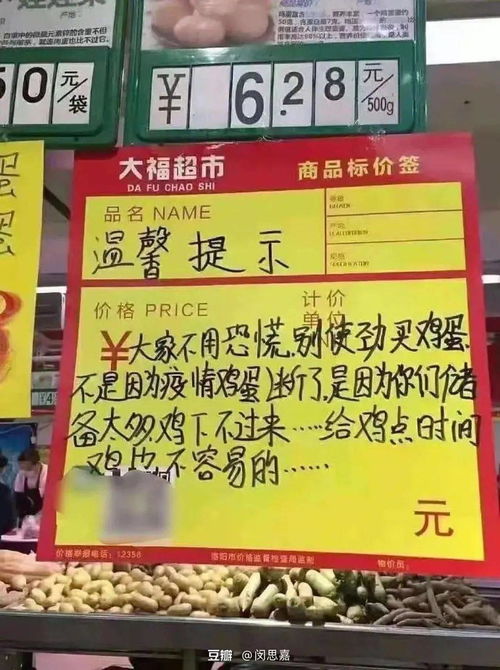 50 元/袋
¥ 6.28 元/500g
大福超市
DA FU CHAO SHI
商品标价签
品名 NAME
温馨提示
产地
规格
价格 PRICE
计价
单位
¥大家不用恐慌,别使劲买鸡蛋
不是因为疫情鸡蛋断了,是因为你们储
备太多,鸡下不过来……给鸡点时间
鸡也不容易的……
元
价格举报电话:12358
洛阳市价格监督检查局监制
物价员:
豆瓣 @闵思嘉